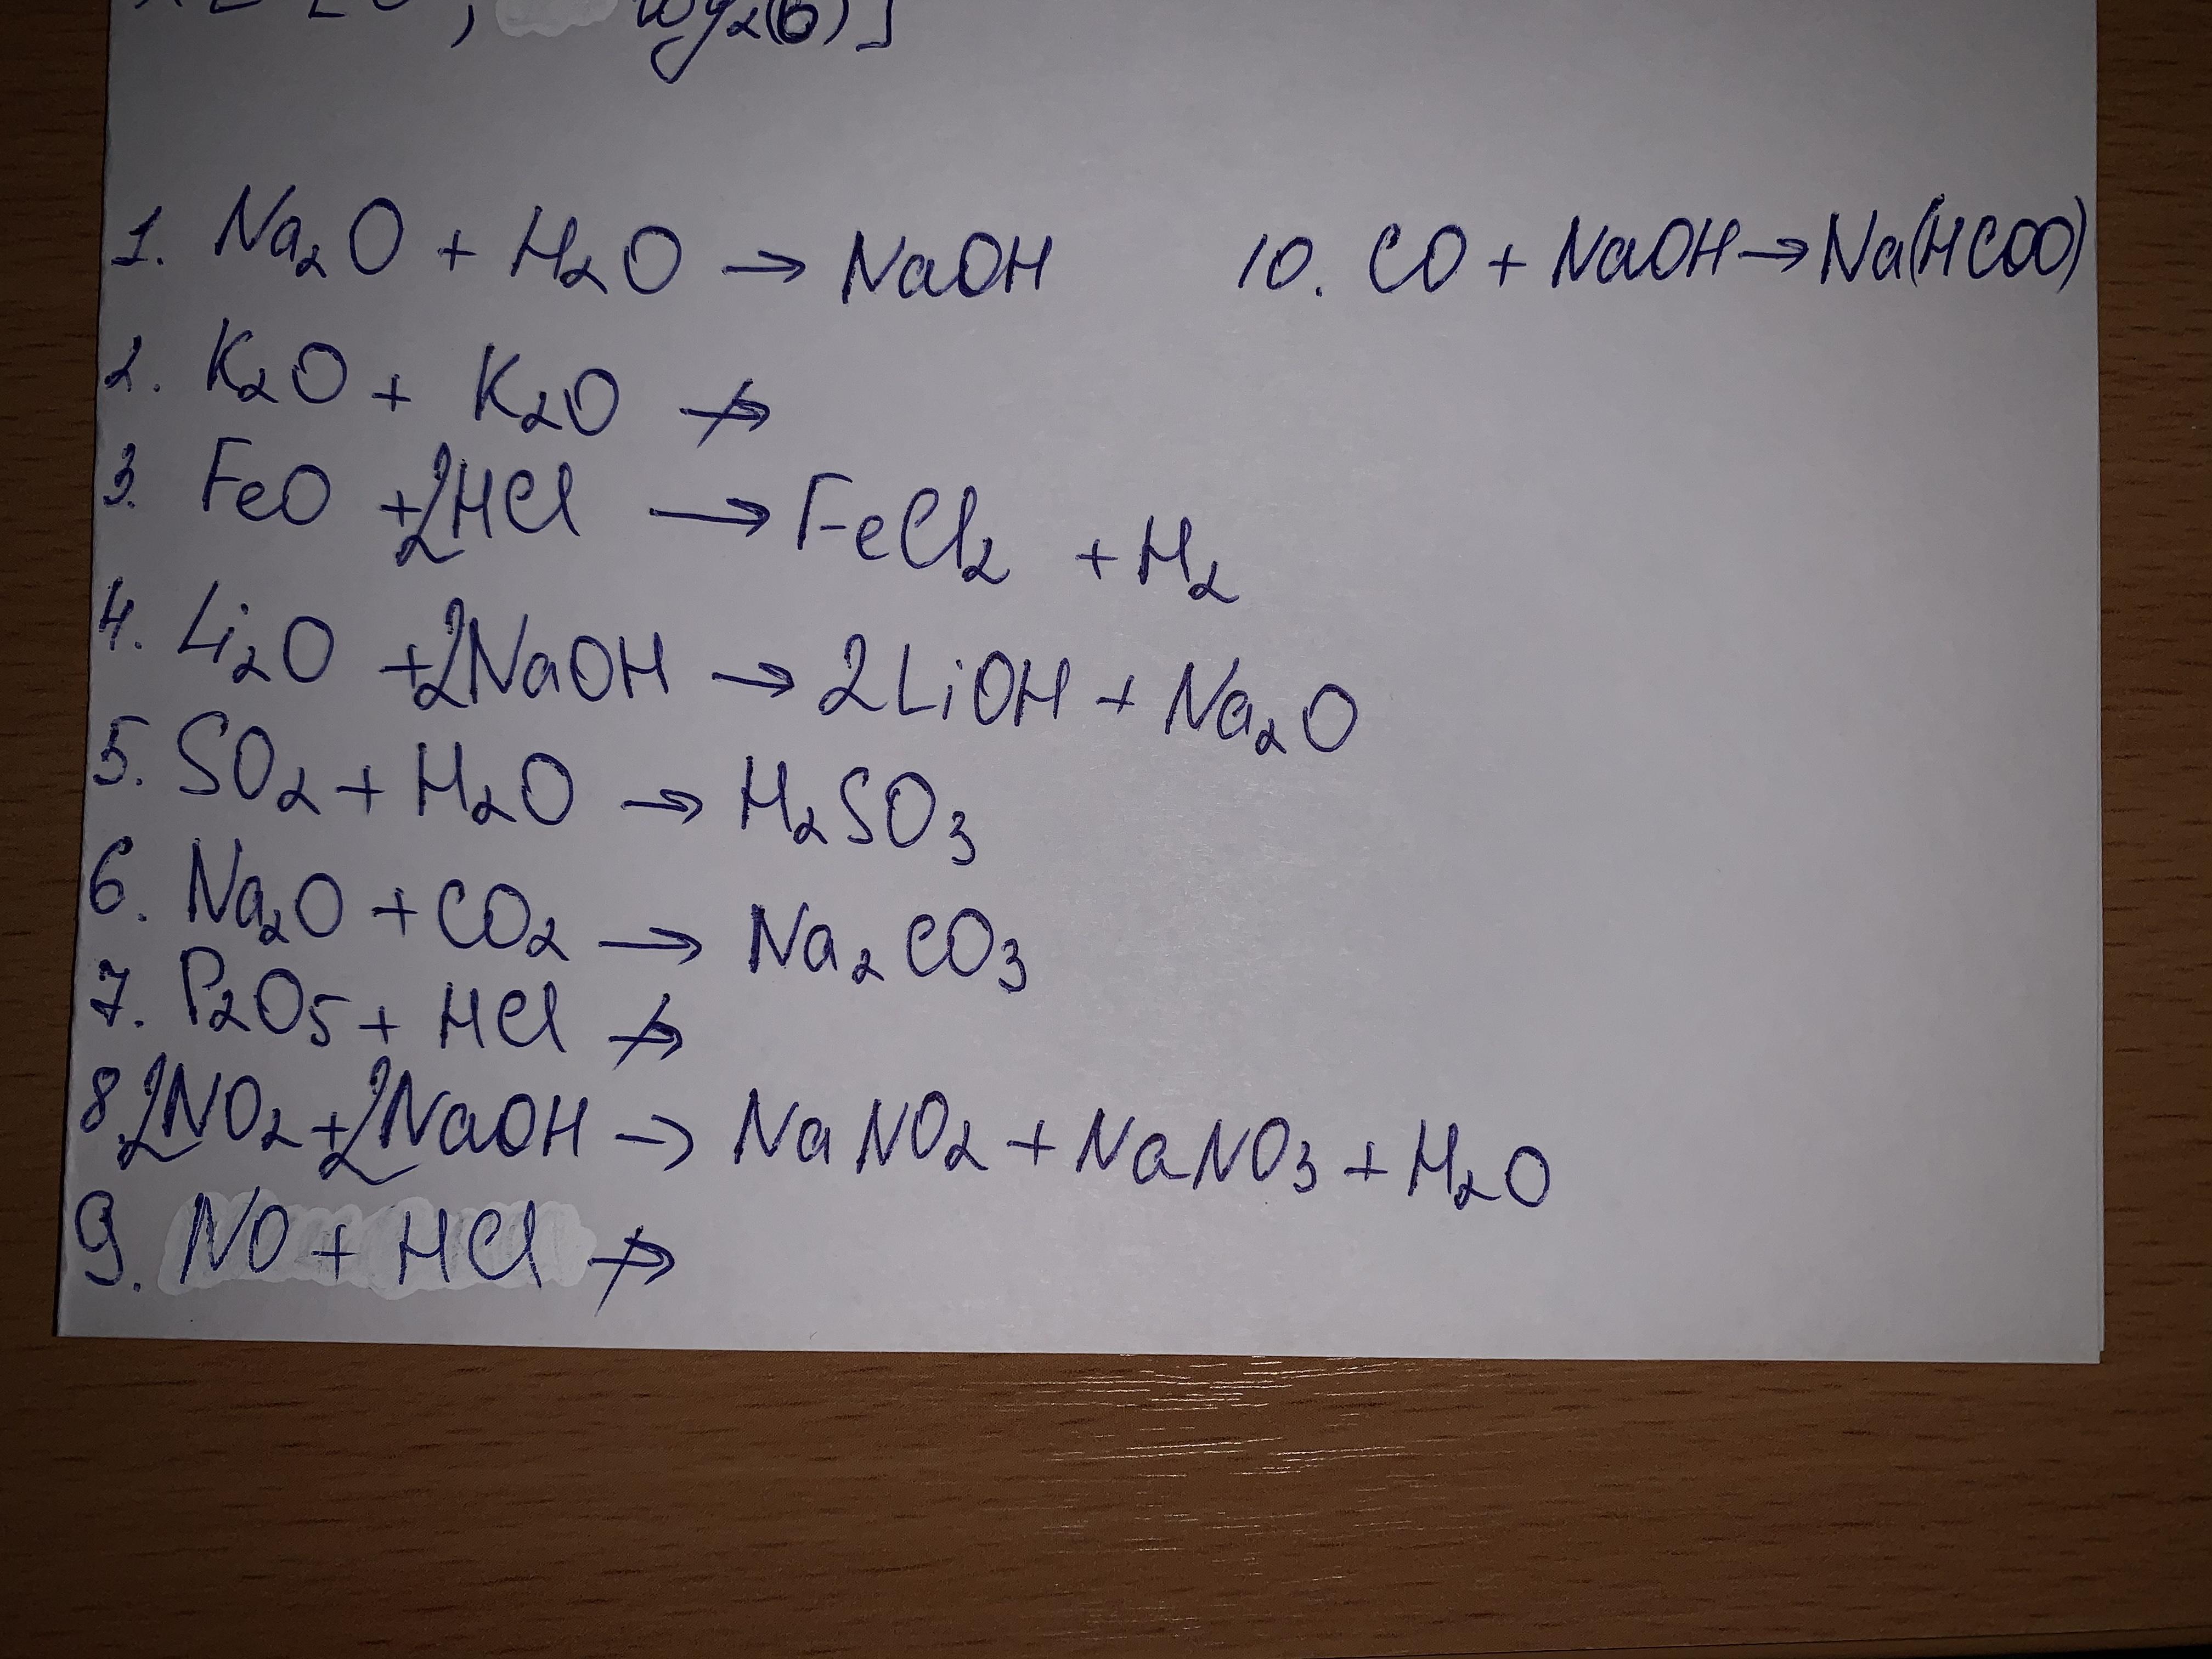 log₂(6)]
1. Na₂O + H₂O → NaOH
2. K₂O + K₂O ↛
3. FeO + 2HCl → FeCl₂ + H₂
4. Li₂O + 2NaOH → 2LiOH + Na₂O
5. SO₂ + H₂O → H₂SO₃
6. Na₂O + CO₂ → Na₂CO₃
7. P₂O₅ + HCl ↛
8. 2NO₂ + 2NaOH → NaNO₂ + NaNO₃ + H₂O
9. NO + HCl ↛
10. CO + NaOH → Na(HCOO)